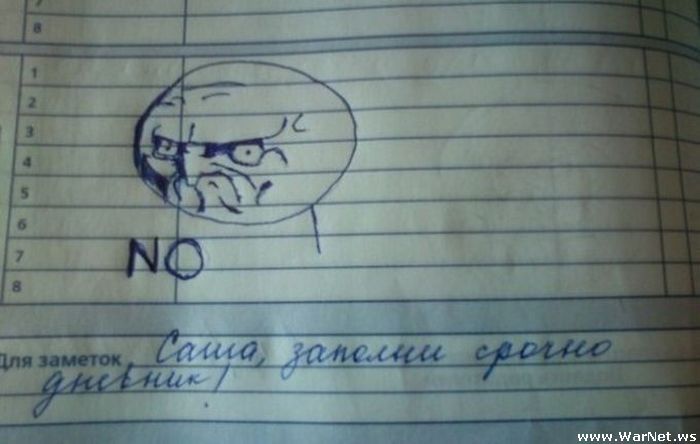 8
1
2
3
4
5
6
7
8
NO
Для заметок Саша, заполни срочно
дневник!
www.WarNet.ws